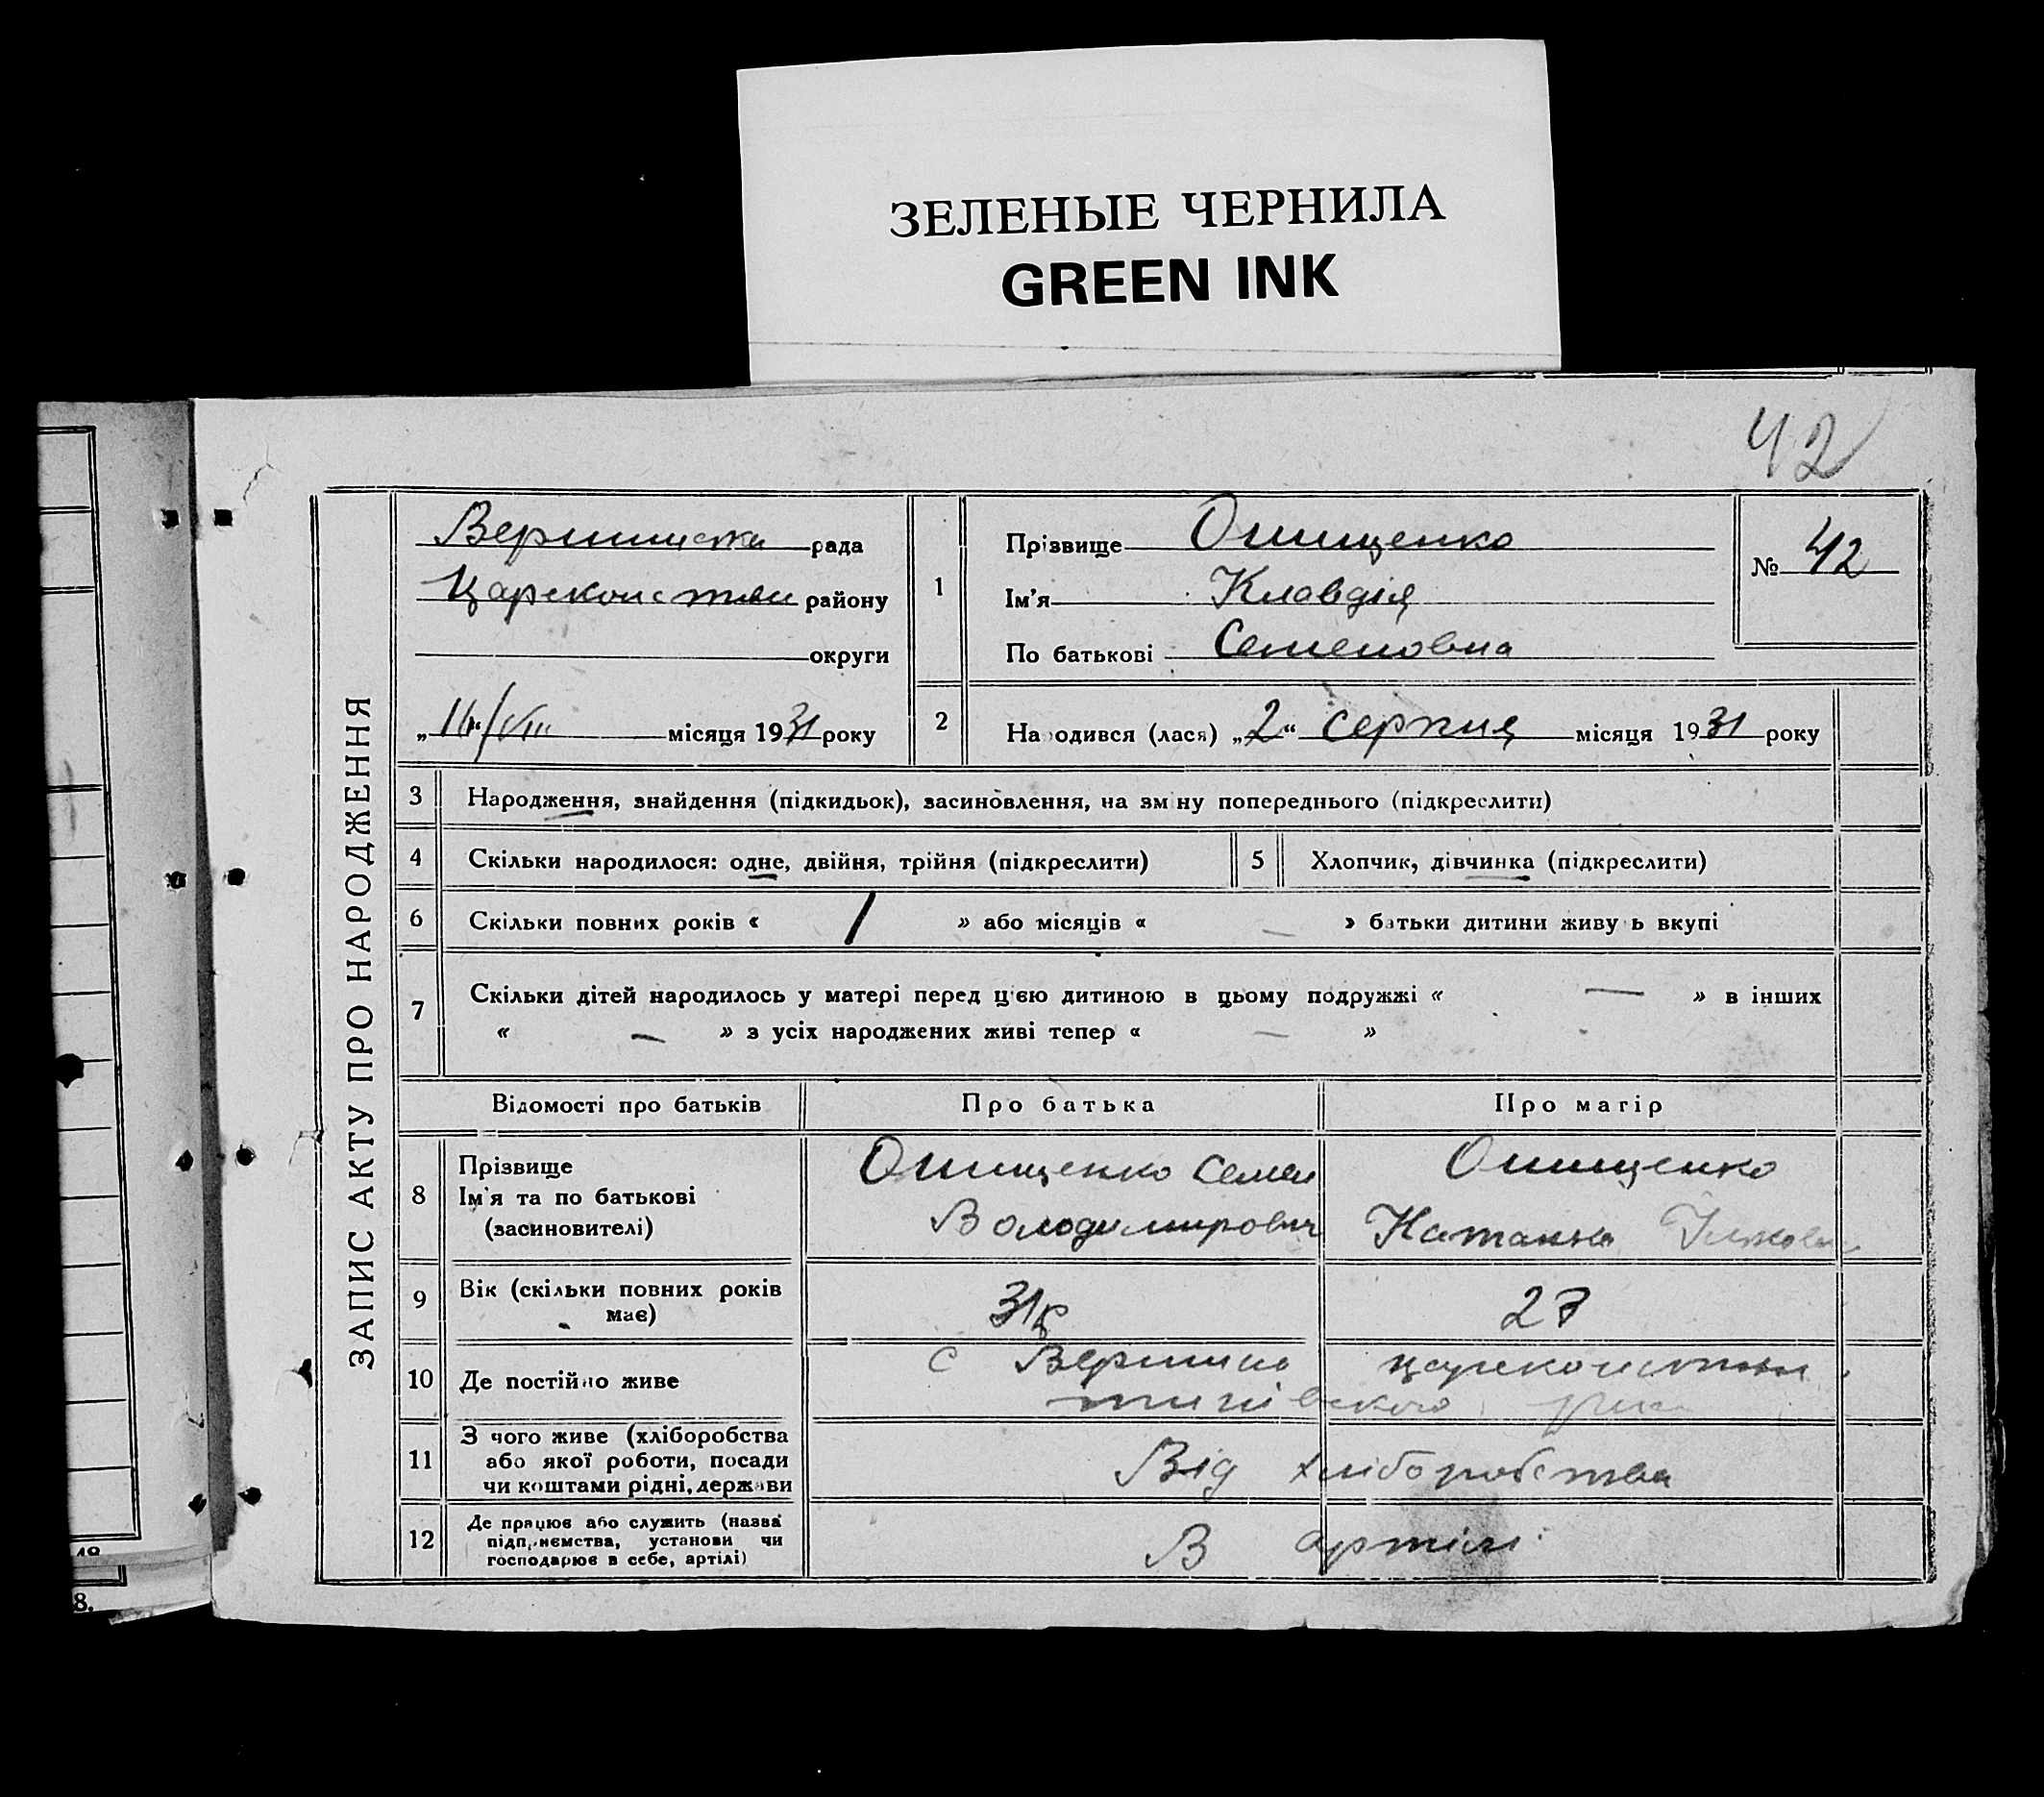 ЗЕЛЕНЫЕ ЧЕРНИЛА
GREEN INK
42
ЗАПИС АКТУ ПРО НАРОДЖЕННЯ
рада
району
округи
місяця 1931 року
1
Прізвище Онищенко
Ім'я Клавдія
По батькові Семеновна
№ 42
2
Народився (лася) „2“ серпня місяця 1931 року
3 Народження, знайдення (підкидьок), засиновлення, на зміну попереднього (підкреслити)
4 Скільки народилося: одне, двійня, трійня (підкреслити)
5 Хлопчик, дівчинка (підкреслити)
6 Скільки повних років « 1 » або місяців « — » батьки дитини живуть вкупі
7 Скільки дітей народилось у матері перед цією дитиною в цьому подружжі « — » в інших
« — » з усіх народжених живі тепер « — »
Відомості про батьків
Про батька
Про матір
8 Прізвище
Ім'я та по батькові
(засиновителі)
Онищенко Семен
Володимирович
Онищенко
9 Вік (скільки повних років
має)
31р
27
10 Де постійно живе
с
11 З чого живе (хліборобства
або якої роботи, посади
чи коштами рідні, держави
Від хліборобства
12 Де працює або служить (назва
підприємства, установи чи
господарює в себе, артілі)
В артілі
8.